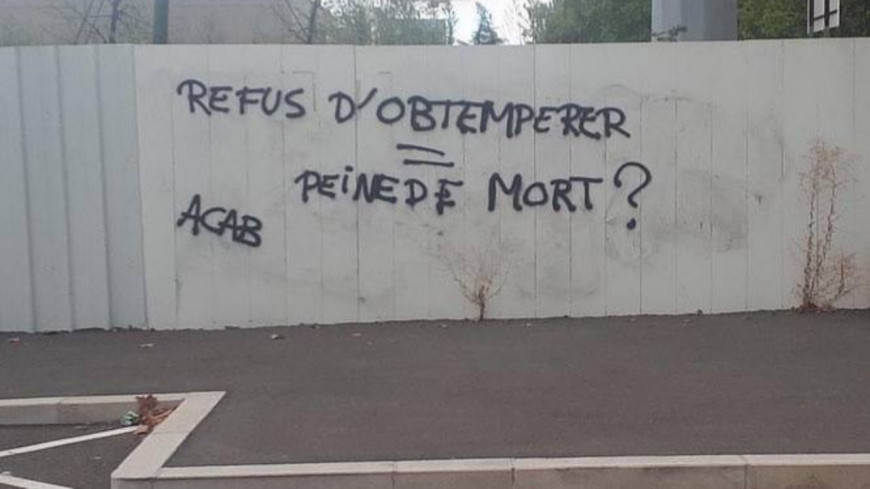 REFUS D'OBTEMPERER
=
PEiNE DE MORT ?
ACAB